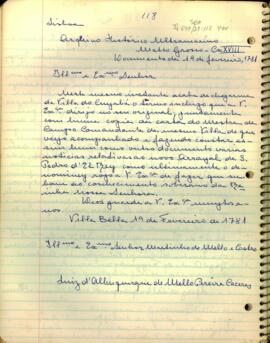 118
Lisboa
Arquivo Histórico Ultramarino
Matto Grosso - Cx XVIII
Documento de 1º de fevereiro, 1781
Illmo e Exmo Senhor
Neste mesmo instante acaba de chegar-me
da Villa do Cuyabá o termo incluzo que a V.
Exa dirijo no seu original, juntamente
com huma copia da carta do Mestre de
Campo Comandante da mesma Villa, de que
veyo acompanhado e fazendo constar as-
sim hum como outro documento varias
noticias relativas ao novo Arrayal de S.
Pedro d'El Rey como ultimamente o de-
nominey rogo a V. Exa de fazer que su-
bam ao conhecimento soberano da Ra-
inha Nossa Senhora.
Deos guarde a V. Exa muytos an-
nos.
Villa Bella 1º de Fevereiro de 1781
Illmo e Exmo Senhor Martinho de Mello e Castro
Luiz d'Albuquerque de Mello Pereira Caceres